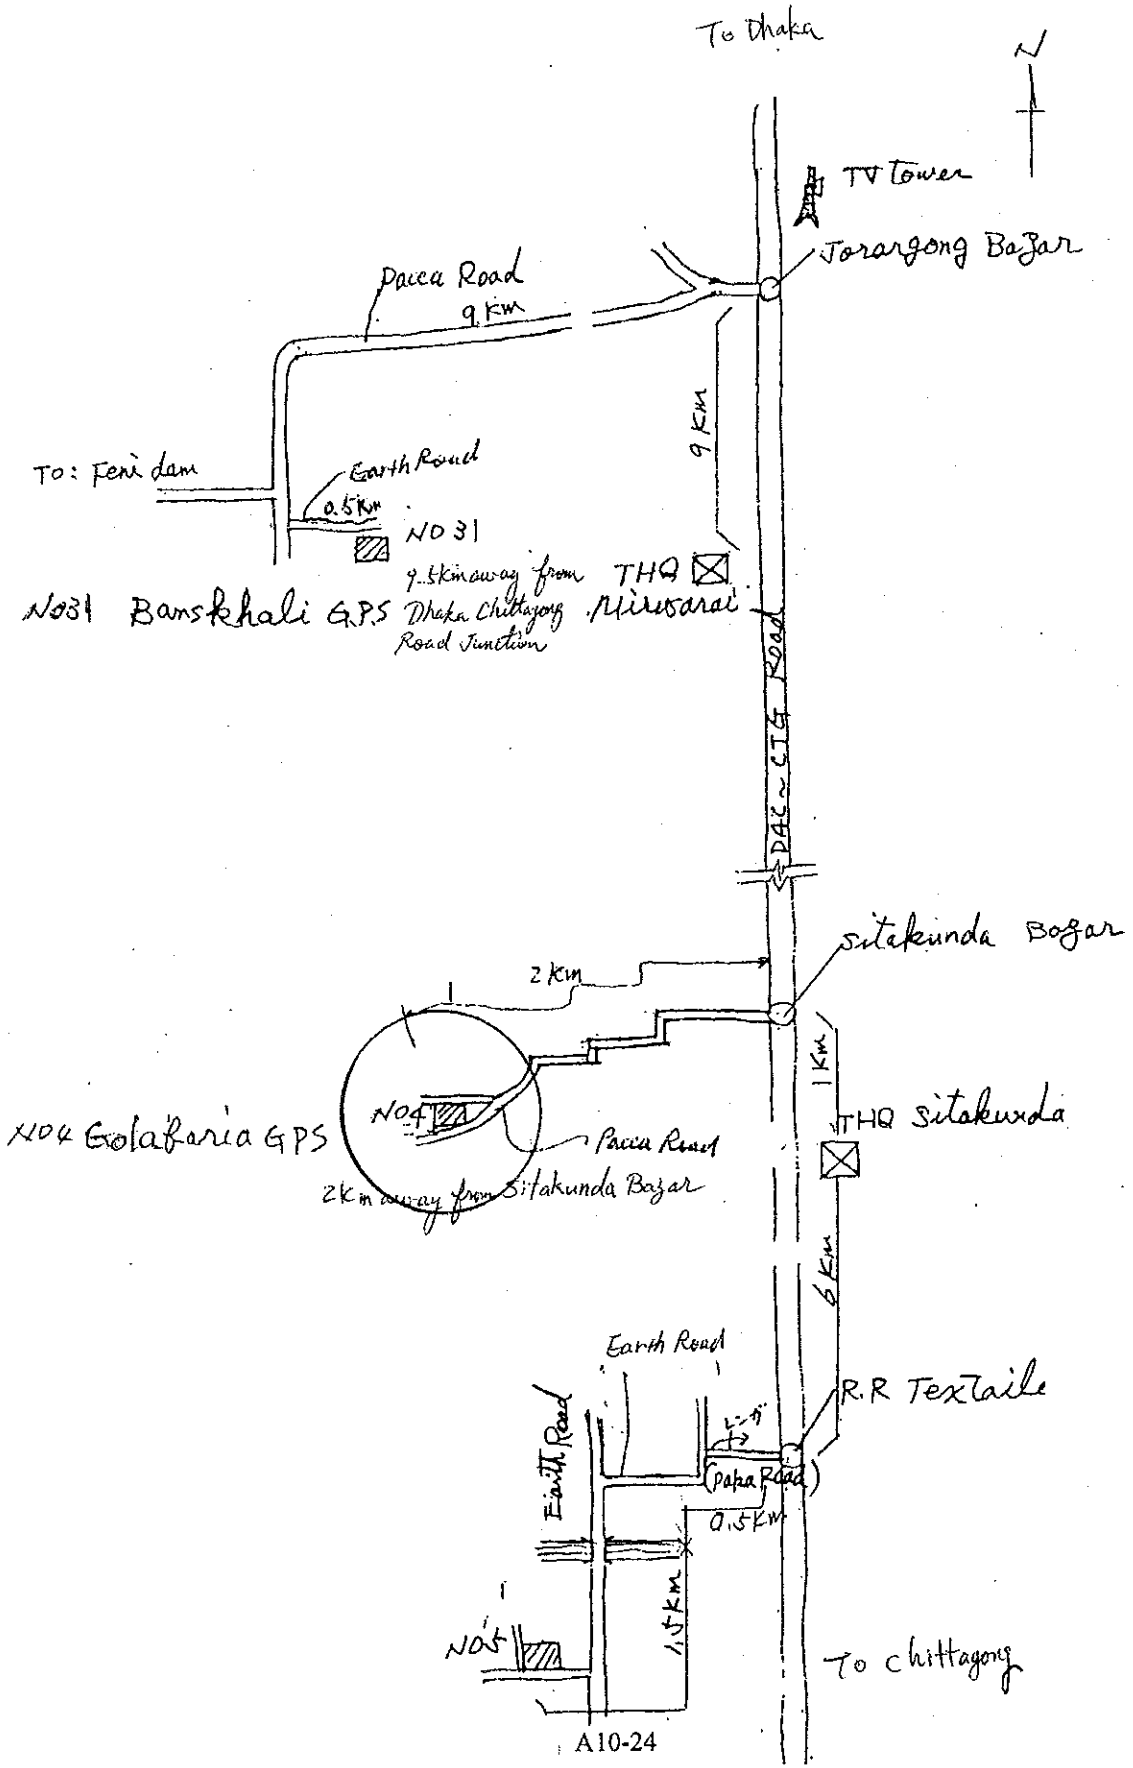 To Dhaka
N
TV Tower
Jorargong Bazar
Pacca Road
9 Km
9 Km
To: Feni dam
Earth Road
0.5 Km
NO 31
9.5Km away from
Dhaka Chittagong
Road Junction
THQ
Mirsarai
NO31 Banskhali G.P.S
DAC ~ CTG Road
Sitakunda Bazar
2 Km
1 Km
NO4
NO4 Golabaria GPS
Pacca Road
2Km away from Sitakunda Bazar
THQ Sitakunda
6 Km
Earth Road
Earth Road
R.R Textaile
レンガ
(paka Road)
0.5Km
1.5Km
NO5
To Chittagong
A10-24